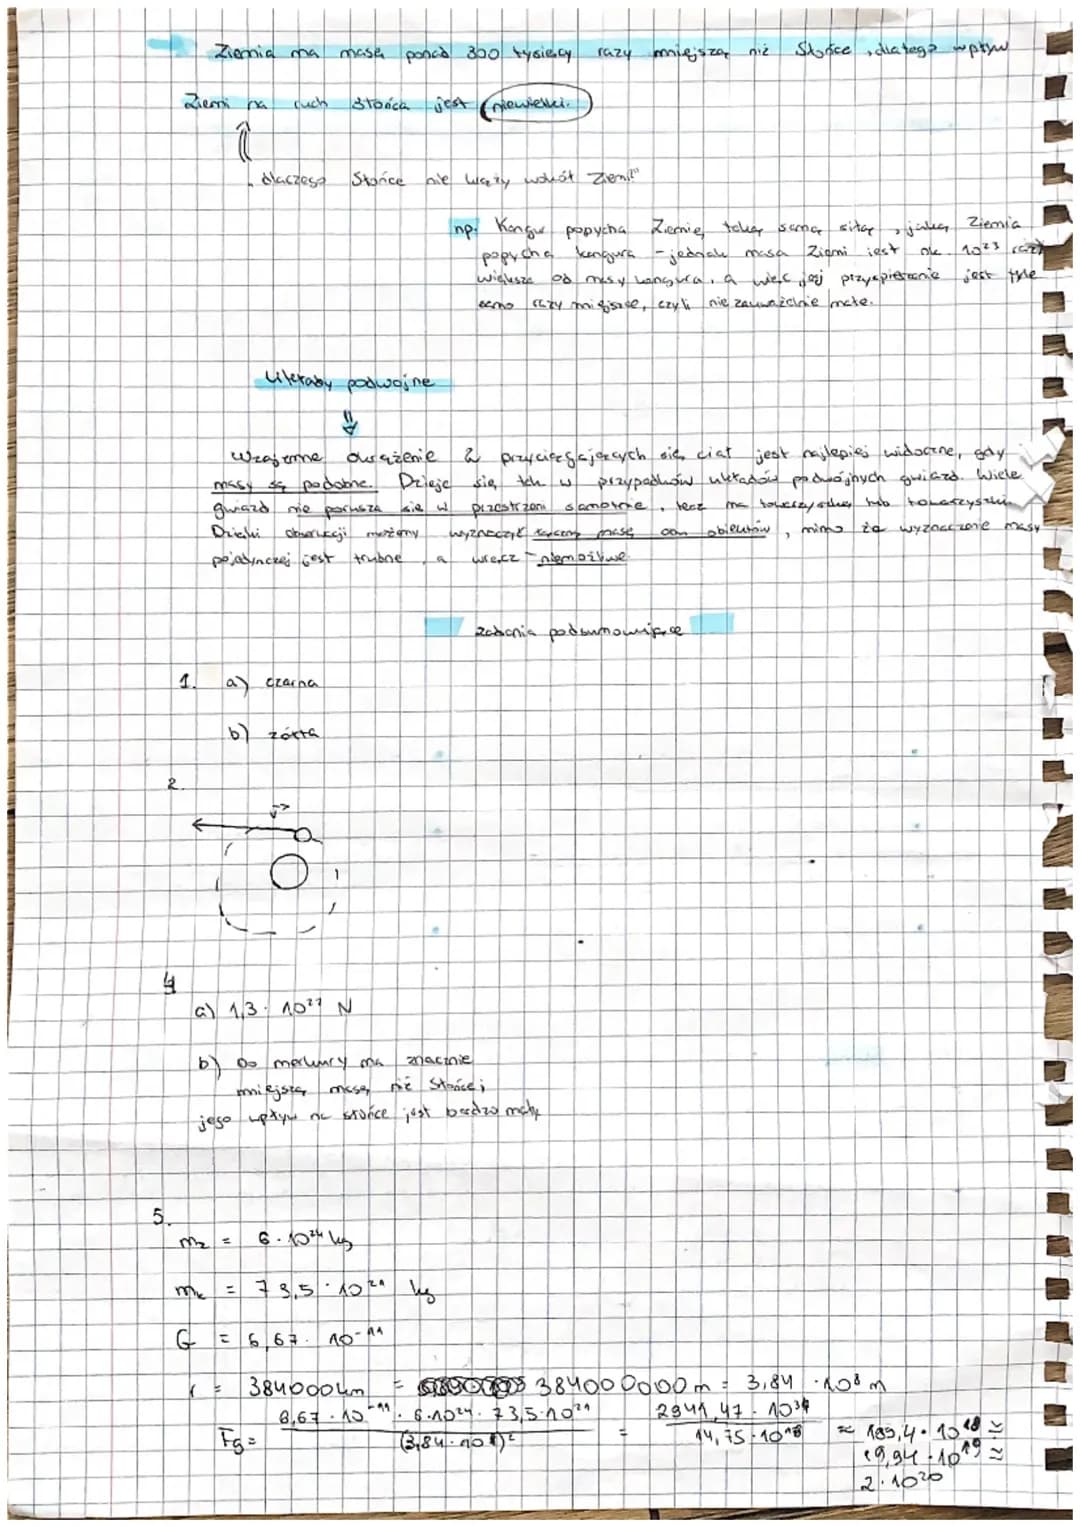 Ziemia ma masę ponad 300 tysięcy razy mniejszą niż Słońce, dlatego wpływ
Ziemi na ruch Słońca jest niewielki.
"dlaczego Słońce nie krąży wokół Ziemi?"
np. Kangur popycha Ziemię taką samą siłą, jaką Ziemia
popycha kangura - jednak masa Ziemi jest ok. 10²³ razy
większa od masy kangura, a więc jej przyspieszenie jest tyle
samo razy mniejsze, czyli niezauważalnie małe.
Układy podwójne
Wzajemne okrążenie 2 przyciągających się ciał jest najlepiej widoczne, gdy
masy są podobne. Dzieje się tak w przypadków układów podwójnych gwiazd. Wiele
gwiazd nie porusza się w przestrzeni samotnie, lecz ma towarzysza lub towarzyszkę.
Dzięki obserwacji możemy wyznaczyć łączną masę obu obiektów, mimo że wyznaczenie masy
pojedynczej jest trudne, a wręcz niemożliwe
zadania podsumowujące
1. a) czarna
b) żółta
2.
v→
4
a) 1,3 · 10²² N
b) bo merkury ma znacznie
mniejszą masę niż Słońce;
jego wpływ na słońce jest bardzo mały
5.
m_z = 6 · 10²⁴ kg
m_k = 73,5 · 10²¹ kg
G = 6,67 · 10⁻¹¹
r = 384000km = 384000000m = 3,84 · 10⁸ m
Fg = 6,67 · 10⁻¹¹ · 6·10²⁴ · 73,5·10²¹ / (3,84·10⁸)² = 2941,47 · 10³⁴ / 14,75 · 10¹⁶ ≈ 199,4 · 10¹⁸ ≃
19,94 · 10¹⁹ ≃
2 · 10²⁰